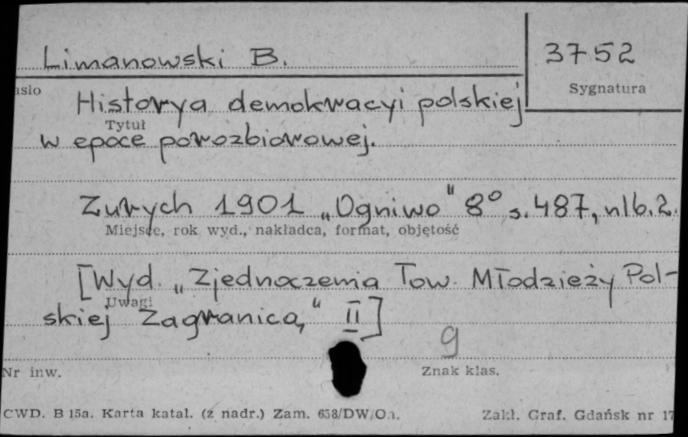 Limanowski B.
3752
Sygnatura
Historya demokracyi polskiej
Tytuł
w epoce porozbiorowej.
Zurych 1901 „Ogniwo" 8° s. 487, nlb. 2.
Miejsce, rok wyd., nakładca, format, objętość
[Wyd. „Zjednoczenia Tow. Młodzieży Pol-
Uwagi
skiej Zagranicą" II]
9
Nr inw.
Znak klas.
CWD. B 15a. Karta katal. (z nadr.) Zam. 658/DW/O.
Zakł. Graf. Gdańsk nr 17